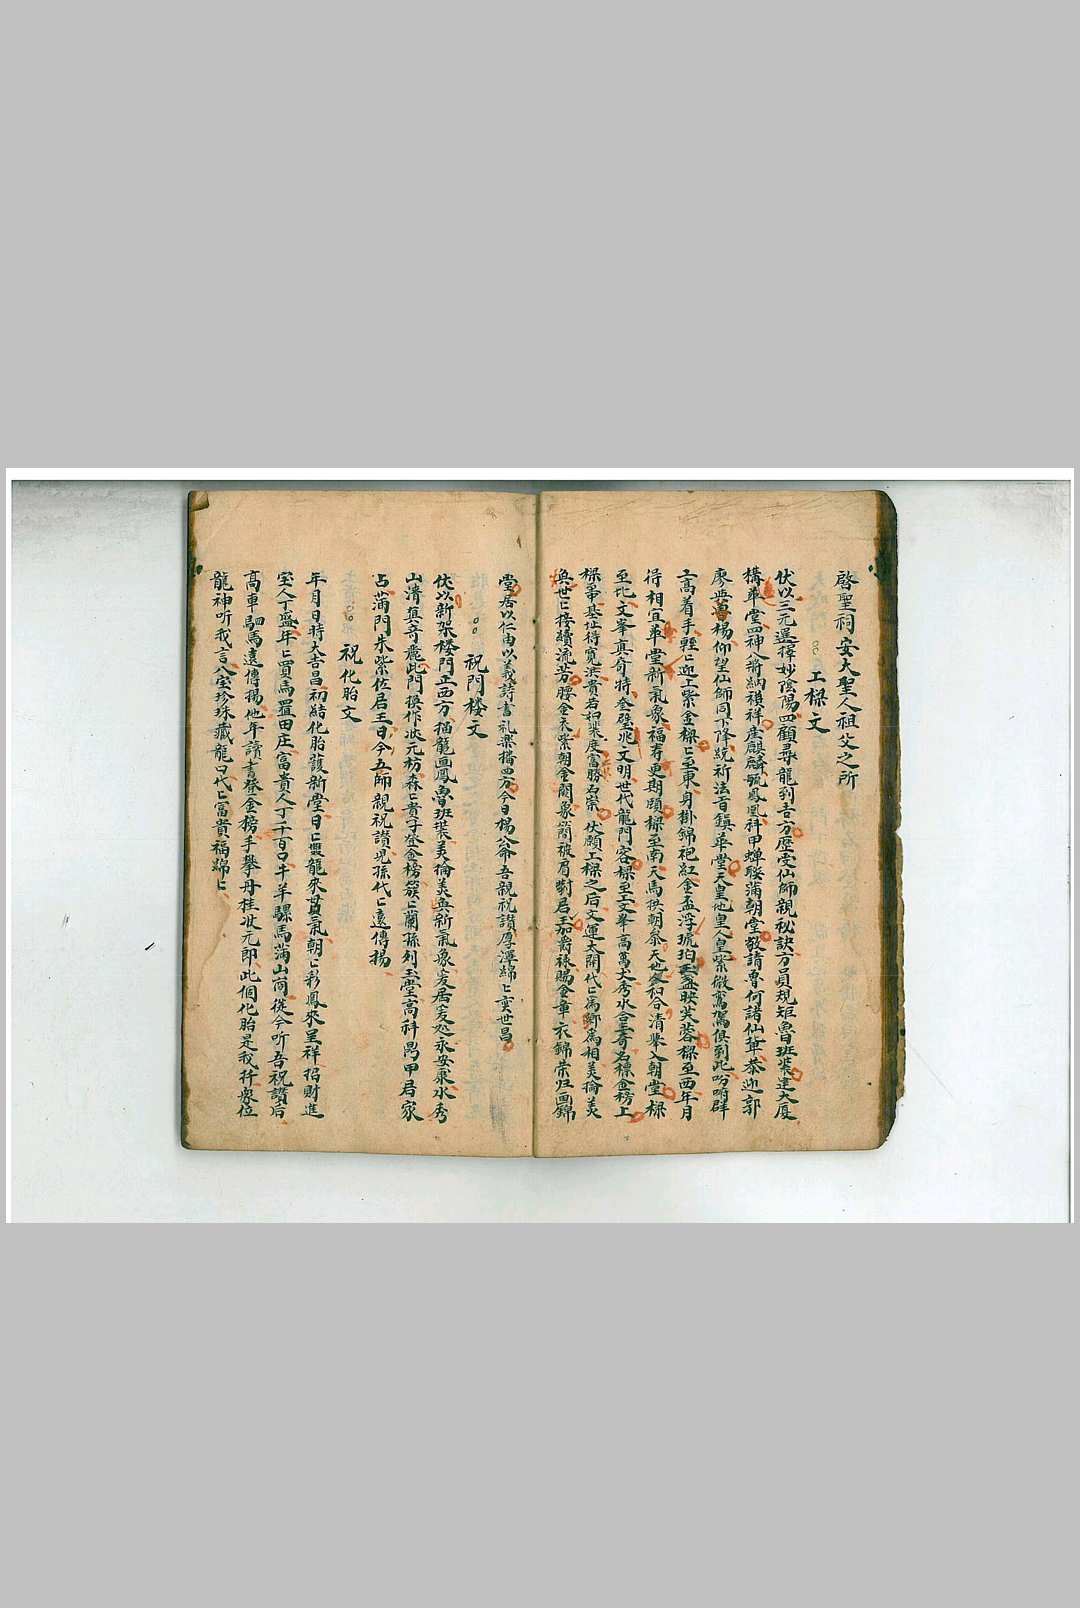 啓聖祠安大聖人祖父之所
工樑文
伏以三元選擇妙陰陽四顧尋龍到吉方歷受仙師親秘訣方員規矩魯班裝建大厦
構華堂四神八將納禎祥產麒麟毓鳳凰科甲蟬聯滿朝堂敬請魯何諸仙輩恭迎郭
廖與曾楊仰望仙師同下降統祈法旨鎮華堂天皇地皇人皇紫微鸞駕俱到此吩咐群
工高着手輕匕迎上紫金樑匕至東身掛錦袍紅金盃浮琥珀玉盞映芙蓉樑至西年月
得相宜華堂新氣象福有更期頤樑至南天馬拱朝叅天地籙和合清輩入朝堂樑
至北文峯真奇特奎壁兆文明世代龍門客樑至上文峯高萬丈秀水合玉奇名標金榜上
樑帝基址得寬洪貴若和裴度富勝石崇伏願工樑之后文運大開代匕為卿為相美倫美
奐世匕接續流芳腰金衣紫朝金闕象簡披肩對君王加爵祿賜金章衣錦榮归画錦
堂居以仁由以義詩書礼樂播四方今日楊公命吾親祝讃厚澤綿匕奕世昌
祝門楼文
伏以新架楼門正西方描龍画鳳魯班裝美倫美奐新氣象爰居爰処永安康水秀
山清真奇麗此門換作狀元坊森匕貴子登金榜簇匕蘭孫列玉堂高科昺甲君家
占滿門朱紫佐君王日今五師親祝讃児孫代匕遠傳揚
祝化胎文
年月日時大吉昌初結化胎護新堂日匕興龍來貫氣朝匕彩鳳來呈祥招財進
宝人丁盛年匕買馬置田庄富貴人丁千百口牛羊騾馬滿山崗從今听吾祝讃后
高車駟馬遠傳揚他年讀書登金榜手攀丹桂狀元郎此個化胎是我扦眾位
龍神听我言八宝珍珠藏龍口代匕富貴福綿匕